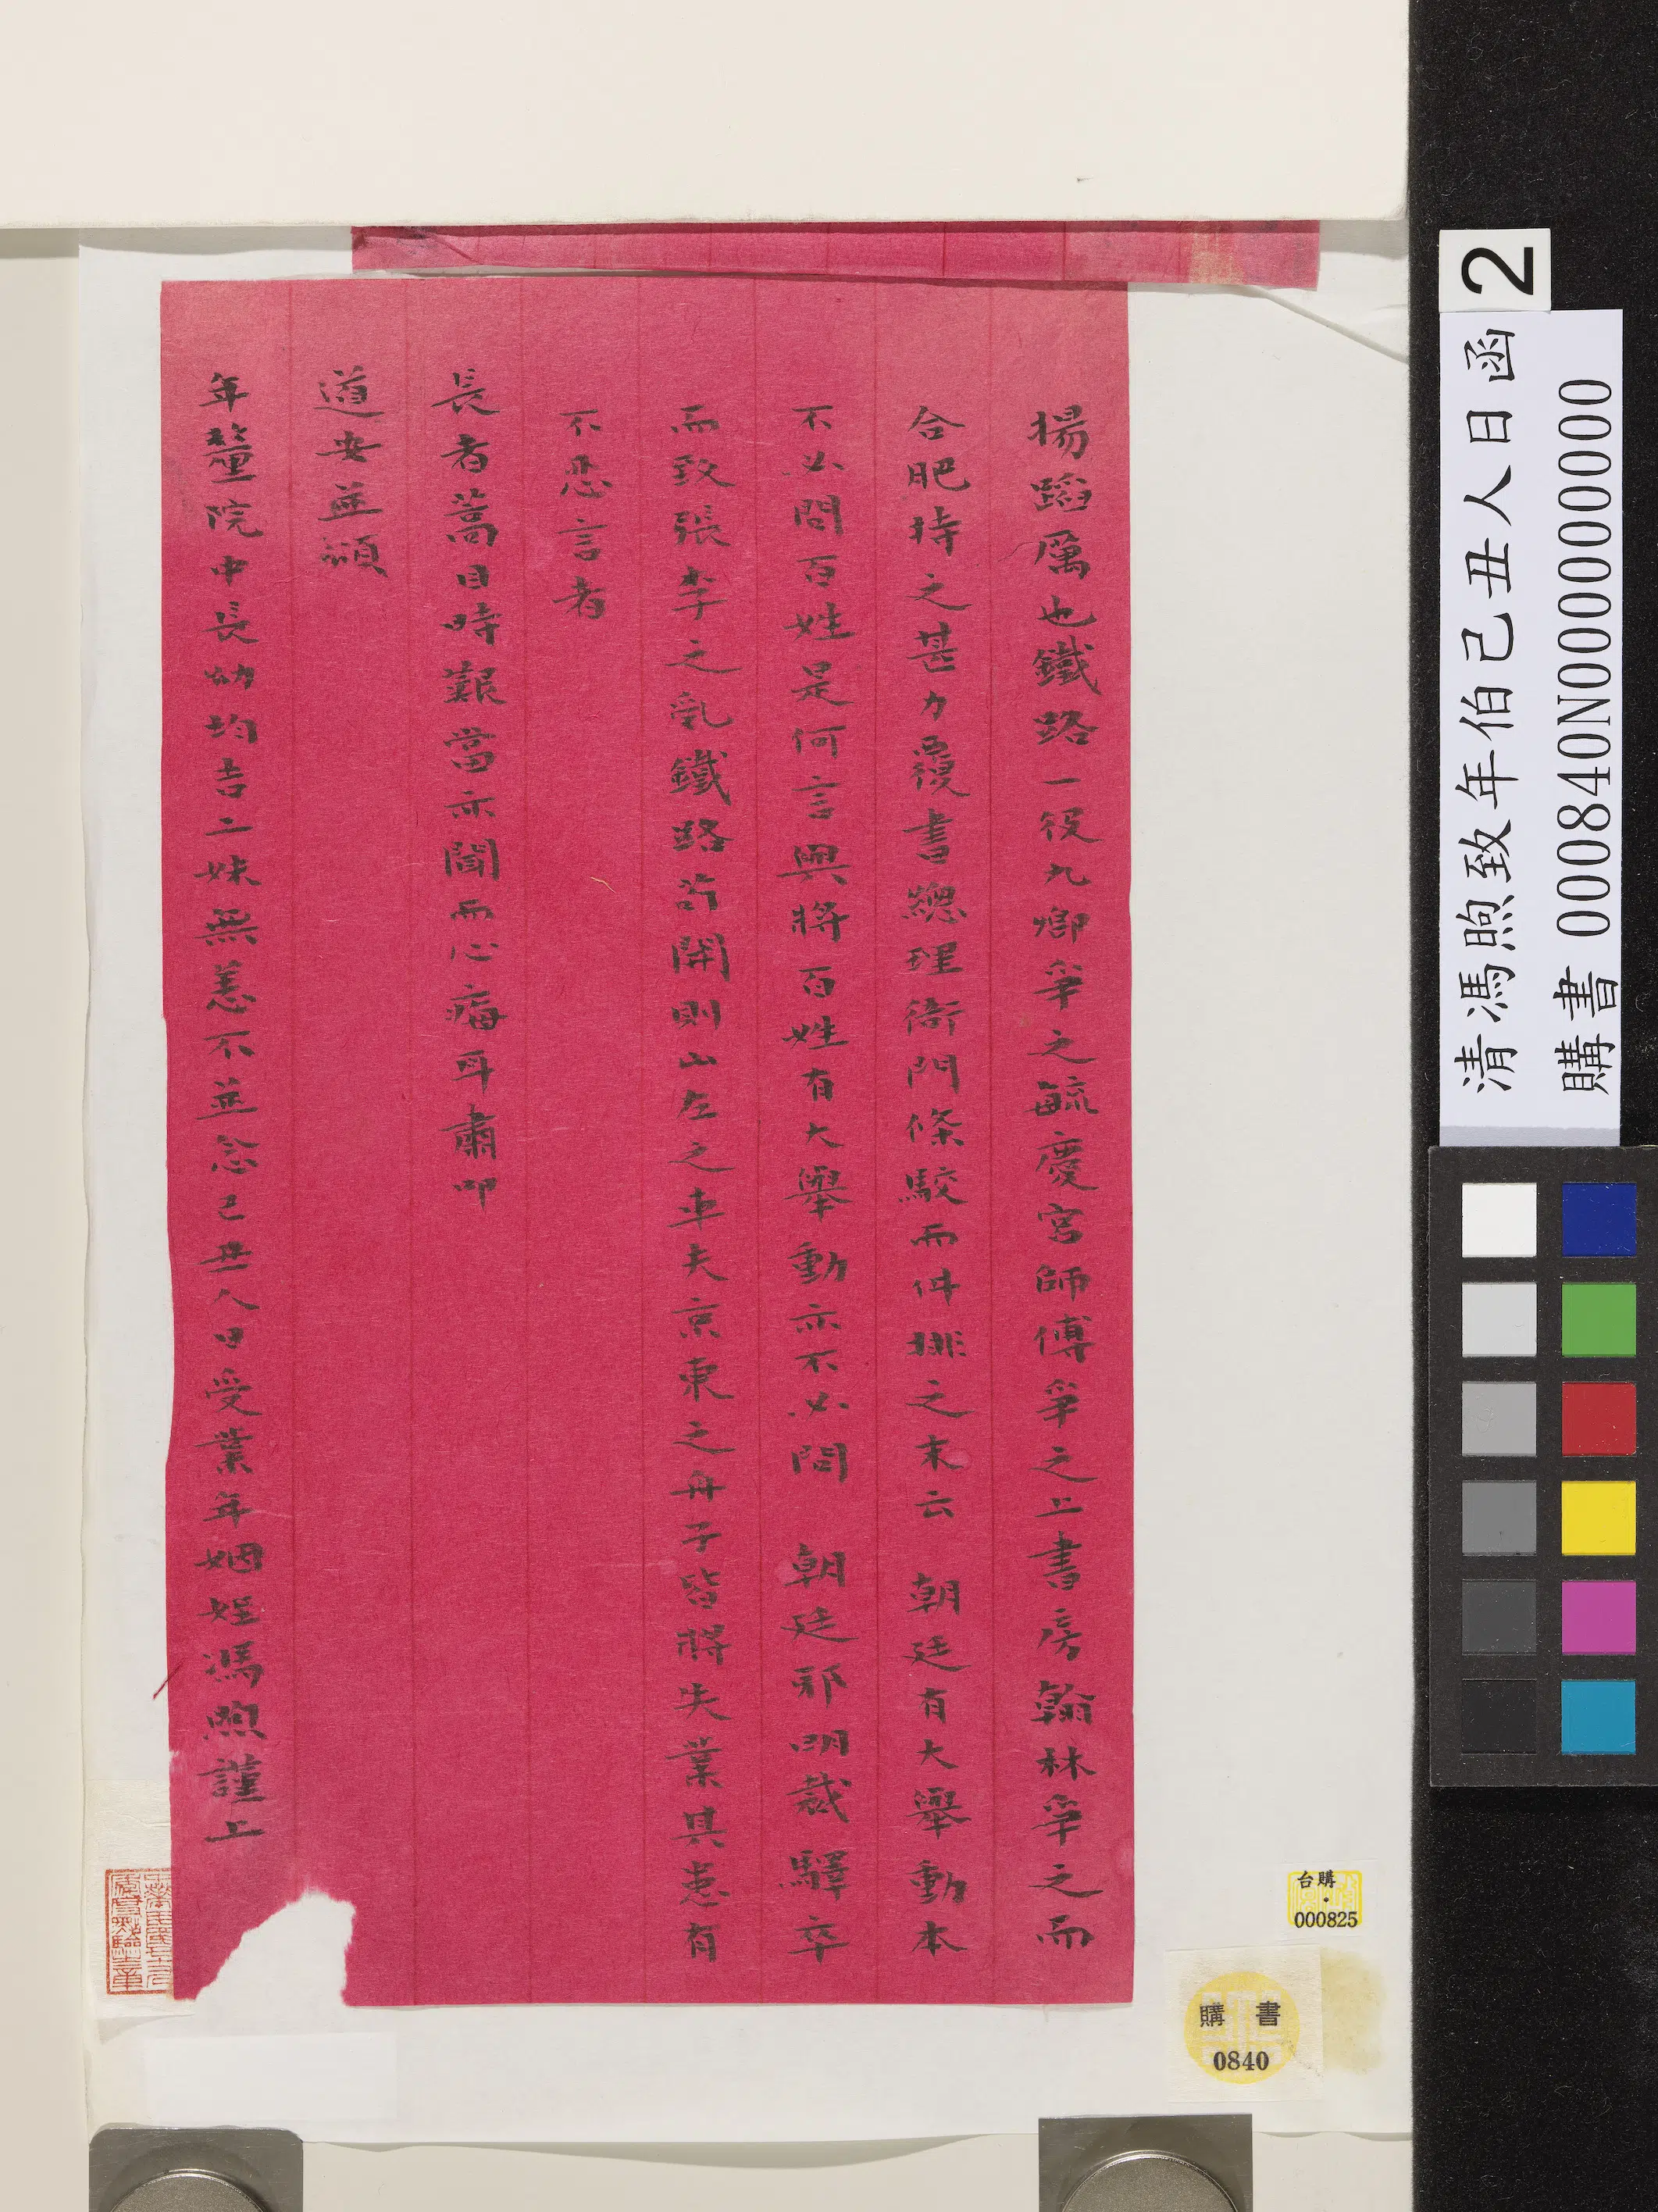 揚蹈厲也鐵路一役九卿爭之毓慶宮師傅爭之上書房翰林爭之而
合肥持之甚力覆書總理衙門條駮而件排之末云　朝廷有大舉動本
不必問百姓是何言興將百姓有大舉動亦不必問　朝廷邪明裁驛卒
而致張李之亂鐵路若開則山左之車夫京東之舟子皆將失業具患有
不忍言者
長者蒿目時艱當亦聞而心痛耳肅叩
道安並頌
年釐院中長幼均吉二妹無恙不並念己丑人日受業年姻姪馮煦謹上
清馮煦致年伯己丑人日函
2
購書 000840N000000000
台購
000825
購書
0840